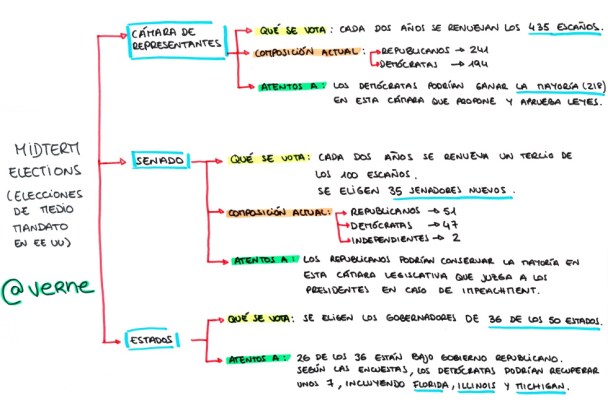 CÁMARA DE
REPRESENTANTES
QUÉ SE VOTA: CADA DOS AÑOS SE RENUEVAN LOS 435 ESCAÑOS.
COMPOSICIÓN ACTUAL:
REPUBLICANOS → 241
DEMÓCRATAS → 194
ATENTOS A: LOS DEMÓCRATAS PODRÍAN GANAR LA MAYORÍA (218)
EN ESTA CÁMARA QUE PROPONE Y APRUEBA LEYES.
MIDTERM
ELECTIONS
(ELECCIONES
DE MEDIO
MANDATO
EN EE UU)
@VERNE
SENADO
QUÉ SE VOTA: CADA DOS AÑOS SE RENUEVA UN TERCIO DE
LOS 100 ESCAÑOS.
SE ELIGEN 35 SENADORES NUEVOS.
COMPOSICIÓN ACTUAL:
REPUBLICANOS → 51
DEMÓCRATAS → 47
INDEPENDIENTES → 2
ATENTOS A: LOS REPUBLICANOS PODRÍAN CONSERVAR LA MAYORÍA EN
ESTA CÁMARA LEGISLATIVA QUE JUZGA A LOS
PRESIDENTES EN CASO DE IMPEACHMENT.
ESTADOS
QUÉ SE VOTA: SE ELIGEN LOS GOBERNADORES DE 36 DE LOS 50 ESTADOS.
ATENTOS A: 26 DE LOS 36 ESTÁN BAJO GOBIERNO REPUBLICANO.
SEGÚN LAS ENCUESTAS, LOS DEMÓCRATAS PODRÍAN RECUPERAR
UNOS 7, INCLUYENDO FLORIDA, ILLINOIS Y MICHIGAN.